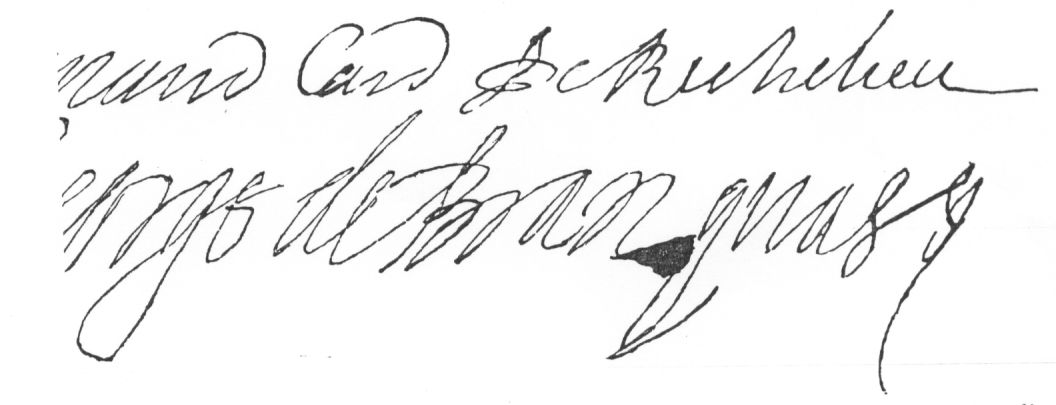 mand Card de Richelieu
eorges de Branquas